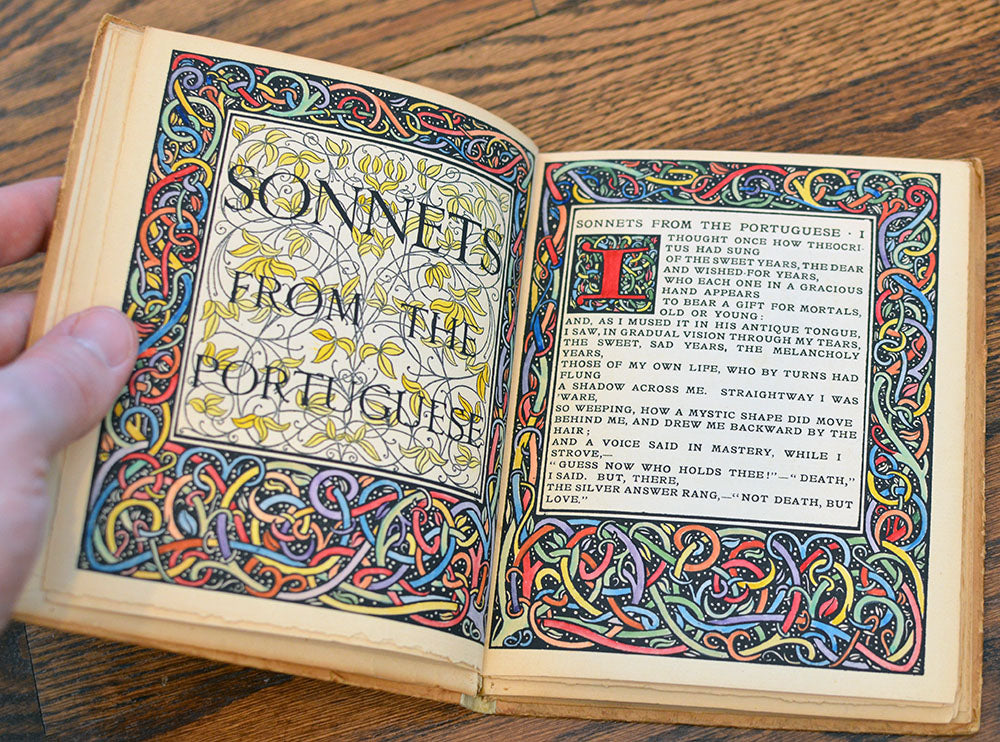 SONNETS
FROM THE
PORTUGUESE
SONNETS FROM THE PORTUGUESE · I
I THOUGHT ONCE HOW THEOCRI-
TUS HAD SUNG
OF THE SWEET YEARS, THE DEAR
AND WISHED-FOR YEARS,
WHO EACH ONE IN A GRACIOUS
HAND APPEARS
TO BEAR A GIFT FOR MORTALS,
OLD OR YOUNG:
AND, AS I MUSED IT IN HIS ANTIQUE TONGUE,
I SAW, IN GRADUAL VISION THROUGH MY TEARS,
THE SWEET, SAD YEARS, THE MELANCHOLY
YEARS,
THOSE OF MY OWN LIFE, WHO BY TURNS HAD
FLUNG
A SHADOW ACROSS ME. STRAIGHTWAY I WAS
'WARE,
SO WEEPING, HOW A MYSTIC SHAPE DID MOVE
BEHIND ME, AND DREW ME BACKWARD BY THE
HAIR;
AND A VOICE SAID IN MASTERY, WHILE I
STROVE,—
"GUESS NOW WHO HOLDS THEE!"—"DEATH,"
I SAID. BUT, THERE,
THE SILVER ANSWER RANG,—"NOT DEATH, BUT
LOVE."